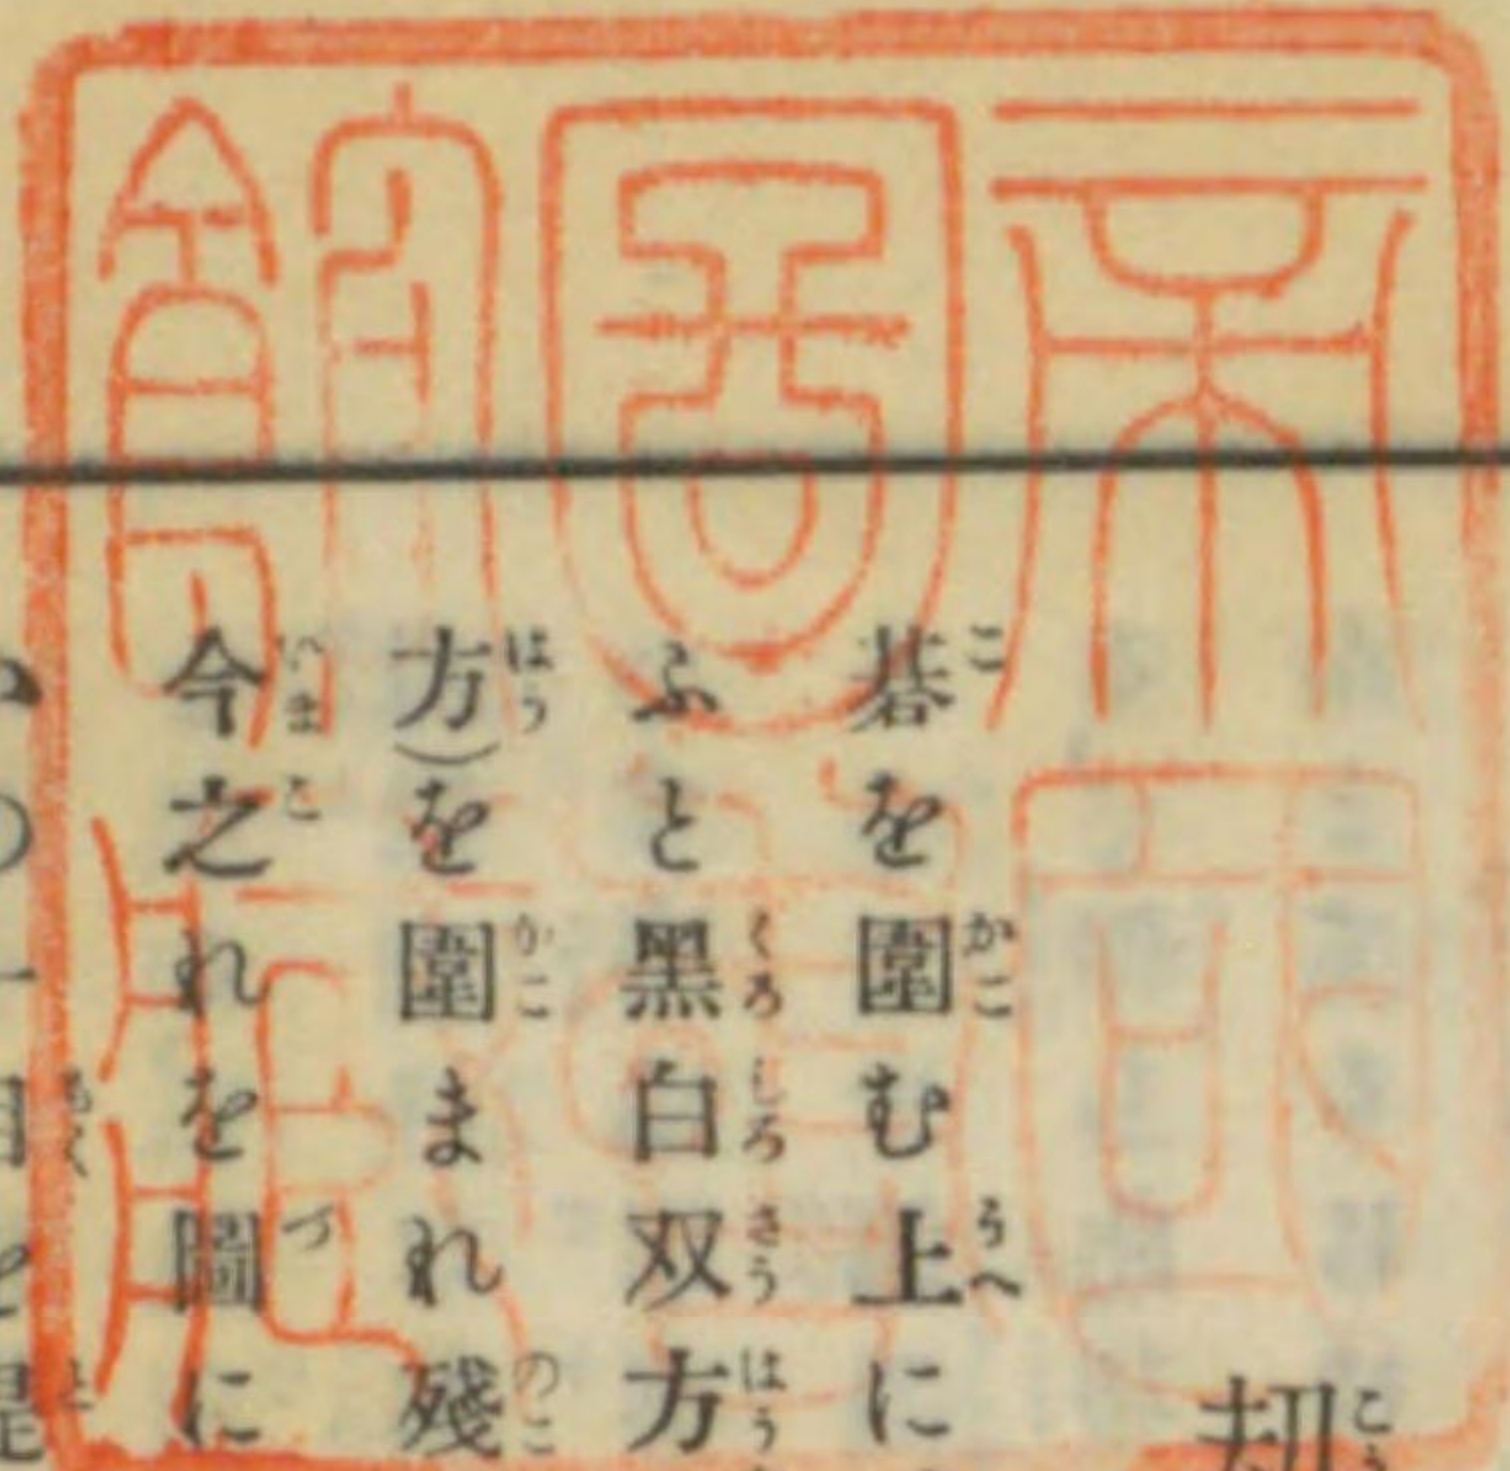 帝國
圖書
館藏
刼
碁を圍む上に
ふと黑白双方
方)を圍まれ殘
今之れを圖に